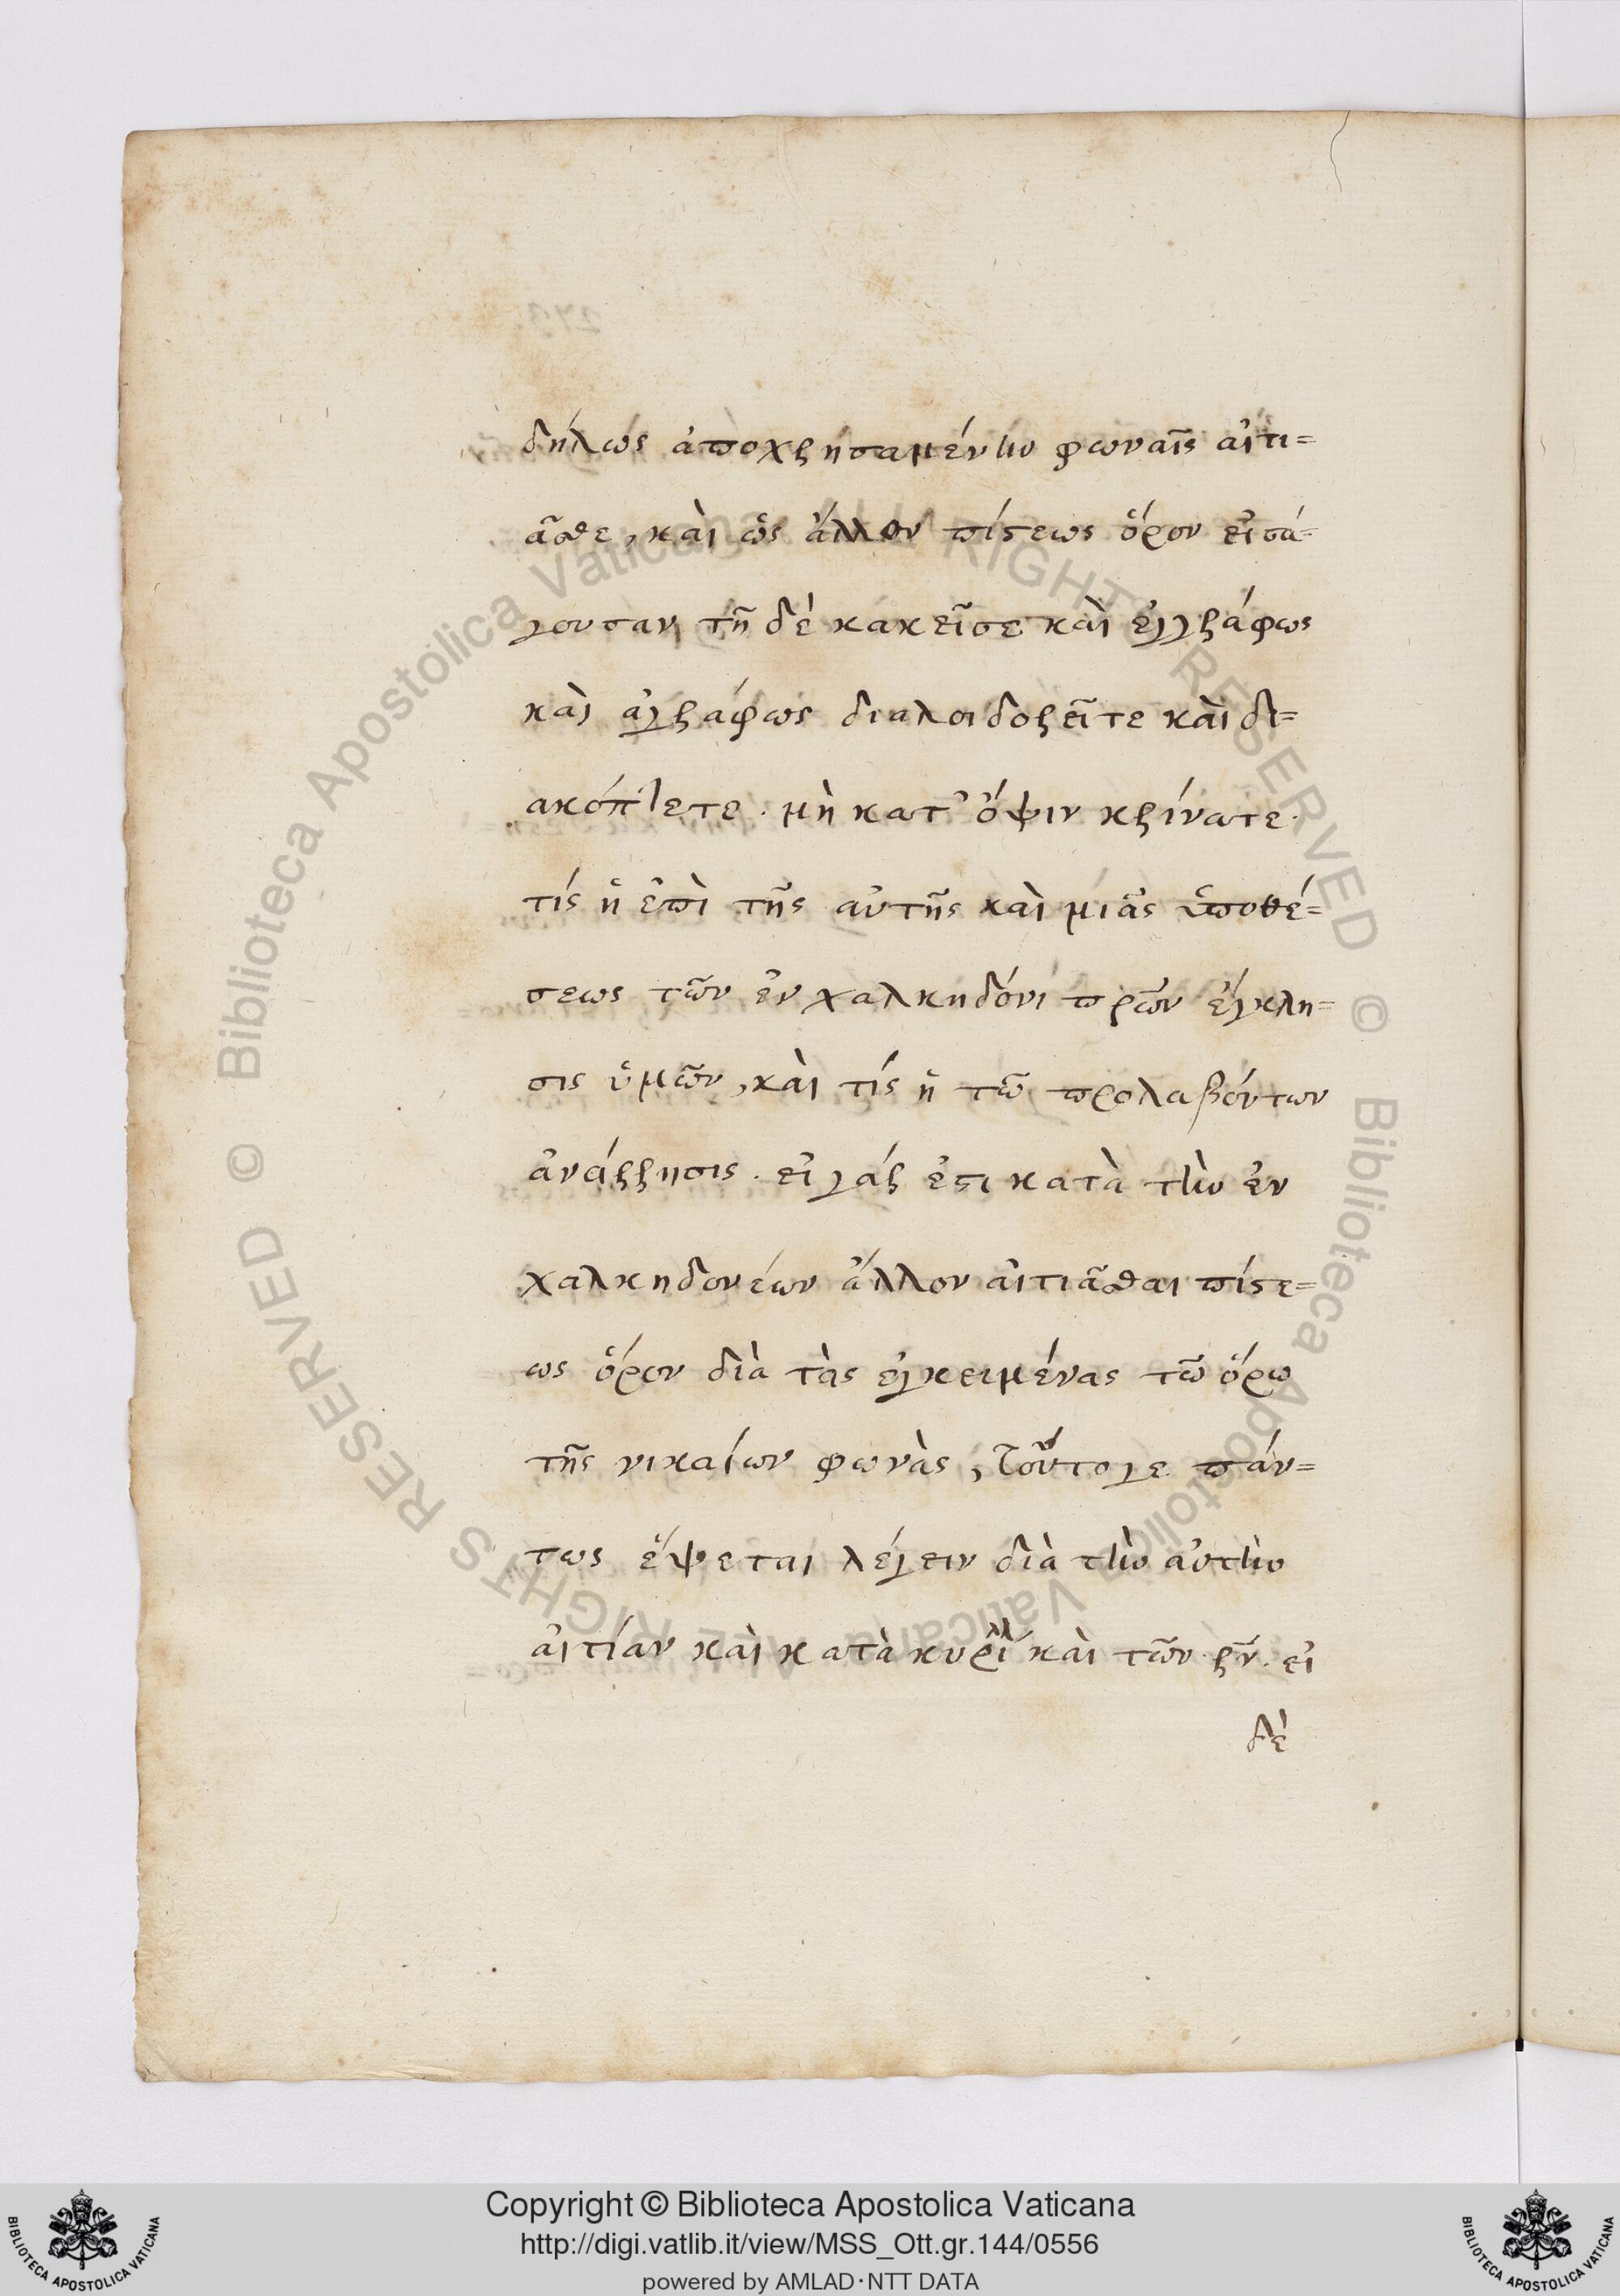 δήλως ἀποχρησαμένην φωναῖς αἰτι=
ᾶσθε, καὶ ὡς ἄλλον πίστεως ὅρον εἰσά=
γουσαν τῆ δέ κακεῖσε καὶ ἐγγράφως
καὶ ἀγράφως διαλοιδορεῖτε καὶ δι=
ακόπτετε. μὴ κατ' ὄψιν κρίνατε.
τίς ἡ ἐπὶ τῆς αὐτῆς καὶ μιᾶς ὑποθέ=
σεως τῶν ἐν χαλκηδόνι πρῶν ἔγκλη=
σις ὑμῶν, καὶ τίς ἡ τῶ προλαβόντων
ἀνάρρησις. εἰ γάρ ἐστι κατὰ τὴν ἐν
χαλκηδονέων ἄλλον αἰτιᾶσθαι πίστε=
ως ὅρον διὰ τὰς ἐγκειμένας τῶ ὅρω
τῆς νικαίων φωνὰς, τοῦτό γε πάν=
τως ἕψεται λέγειν διὰ τὴν αὐτὴν
αἰτίαν καὶ κατὰ κυρίλ καὶ τῶν ρν. εἰ
δὲ
Copyright © Biblioteca Apostolica Vaticana
http://digi.vatlib.it/view/MSS_Ott.gr.144/0556
powered by AMLAD·NTT DATA